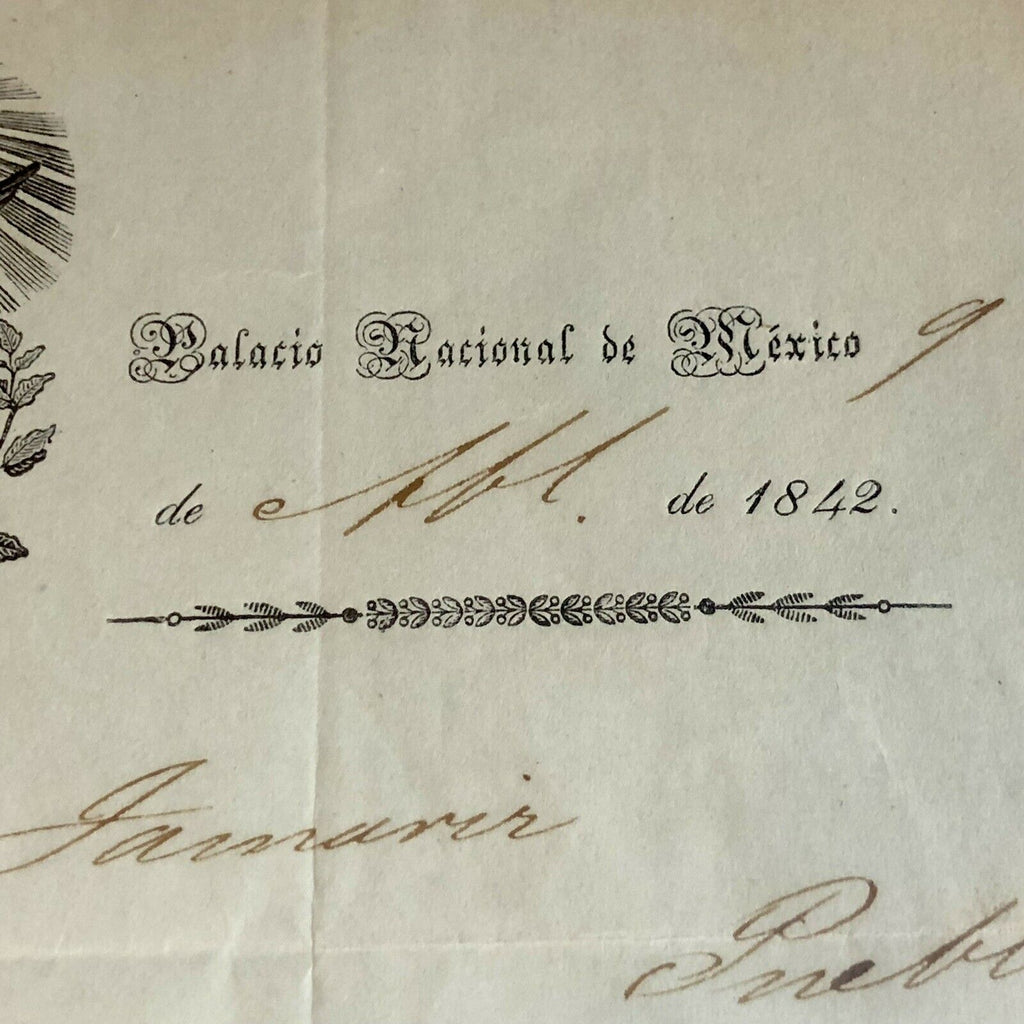 Palacio Nacional de México 9
de Abl. de 1842.
Tamariz
Puebl